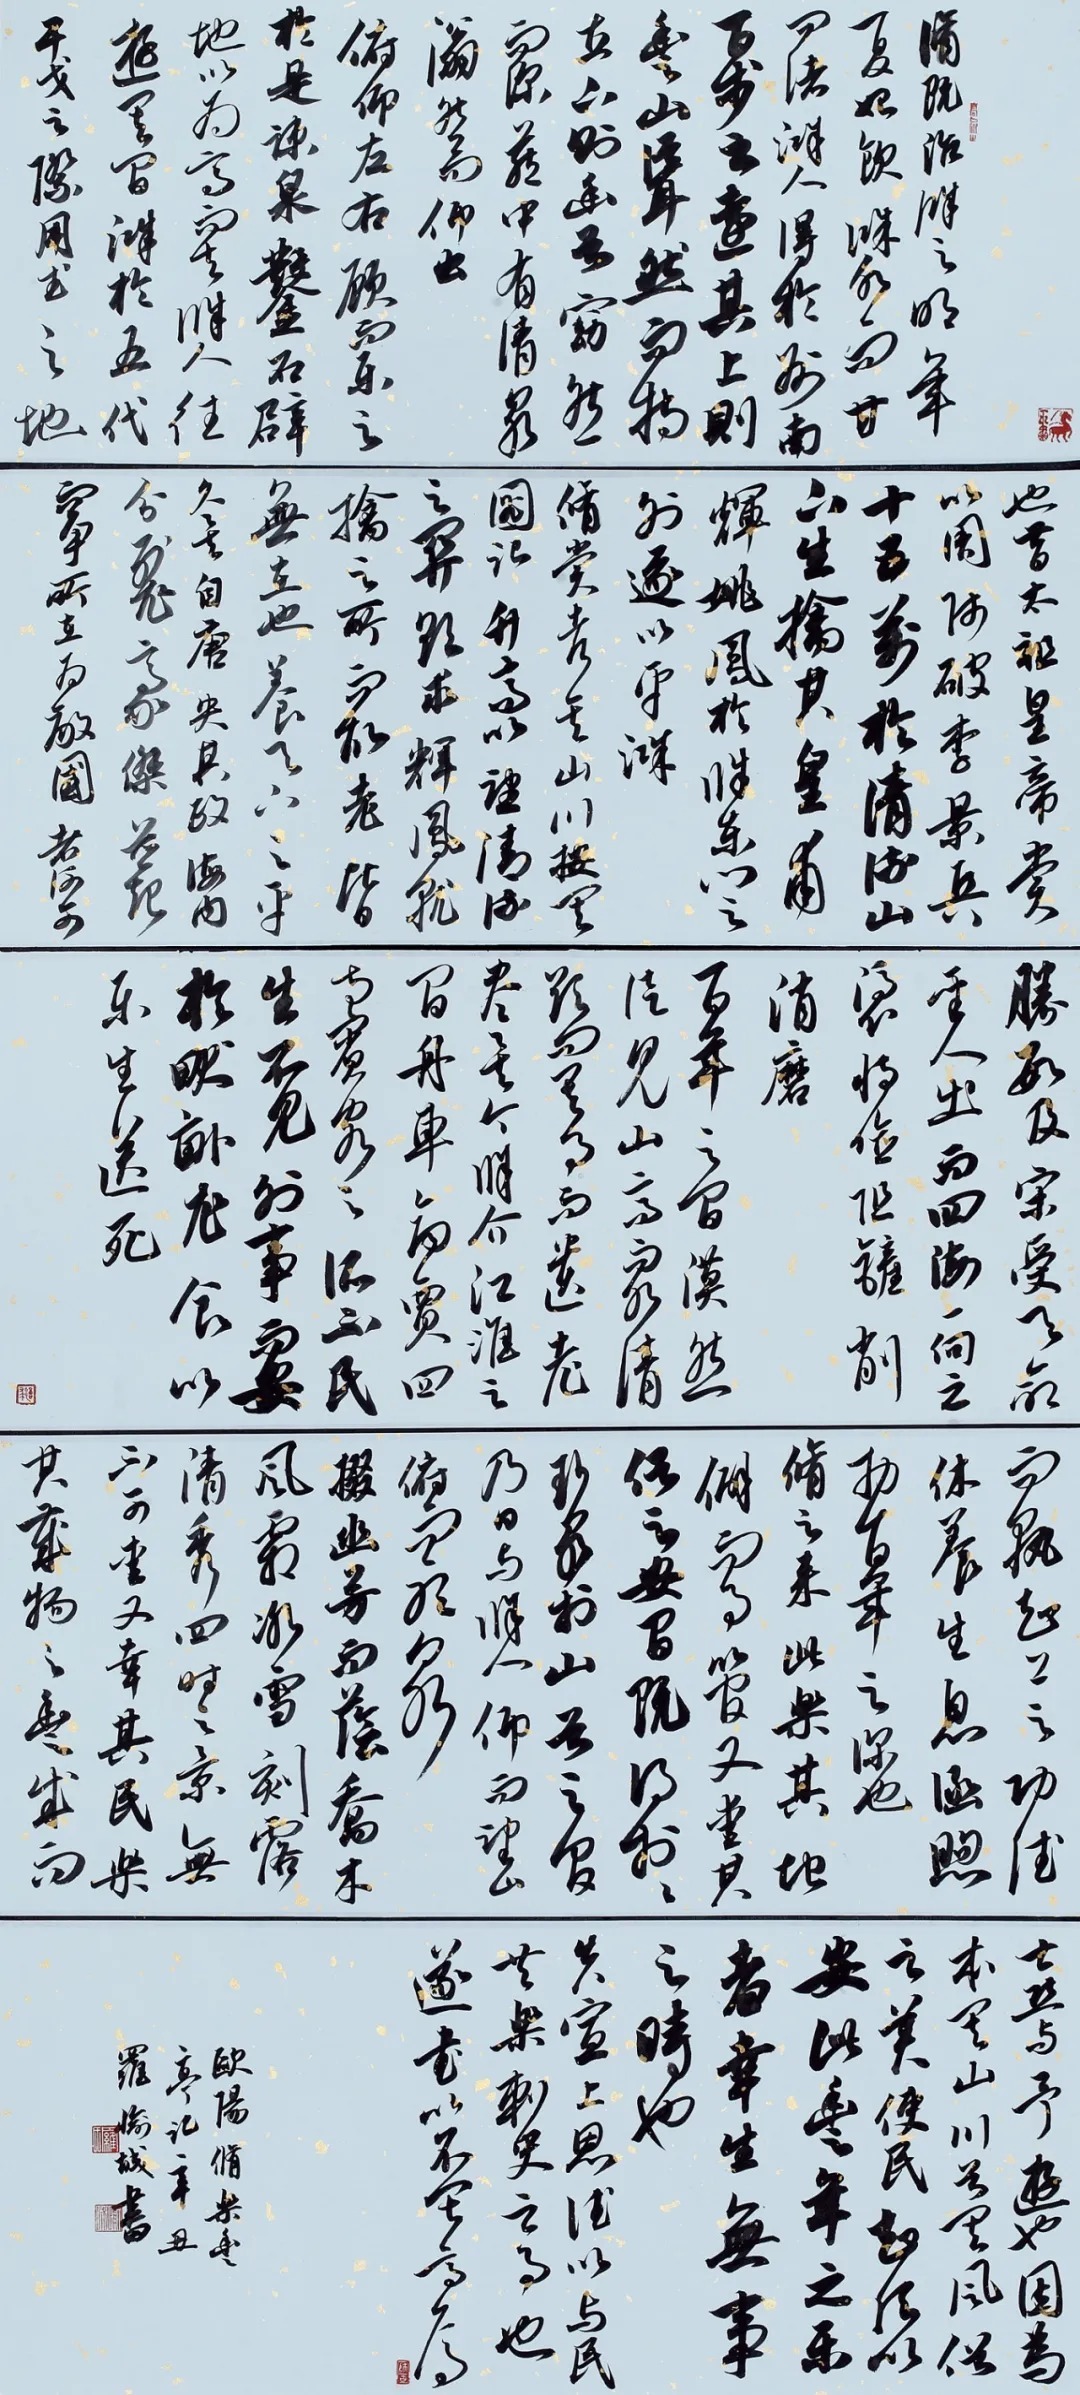 脩既治滁之明年
夏始飲滁水而甘
問諸滁人得於州南
百步之遠其上則
豐山聳然而特
立下則幽谷窈然
而深藏中有清泉
滃然而仰出
俯仰左右顧而樂之
於是疏泉鑿石辟
地以為亭而與滁人往
遊其間滁於五代
干戈之際用武之地
也昔太祖皇帝嘗
以周師破李景兵
十五萬於清流山
下生擒其皇甫
輝姚鳳於滁東門之
外遂以平滁
脩嘗考其山川按其
圖記升高以望清流
之關欲求輝鳳就
擒之所而故老皆
無在也蓋天下之平
久矣自唐失其政海內
分裂豪傑并起
而爭所在為敵國者何可
勝數及宋受天命
聖人出而四海一向之
憑恃險阻鏟削
消磨
百年之間漠然
徒見山高而水清
欲問其事而遺老
盡矣今滁介江淮之
間舟車商賈四
方賓客之所不至民
生不見外事而安
於畎畝衣食以
樂生送死
而孰知上之功德
休養生息涵煦
於百年之深也
脩之來此樂其地
僻而事簡又愛其
俗之安閒既得斯
泉於山谷之間
乃日與滁人仰而望山
俯而聽泉
掇幽芳而蔭喬木
風霜冰雪刻露
清秀四時之景無
不可愛又幸其民樂
其歲物之豐成而
喜與予遊也因為
本其山川道其風俗
之美使民知所以
安此豐年之樂
者幸生無事
之時也
夫宣上恩德以與民
共樂刺史之事也
遂書以名其亭焉
歐陽脩樂豐
亭記辛丑
羅書